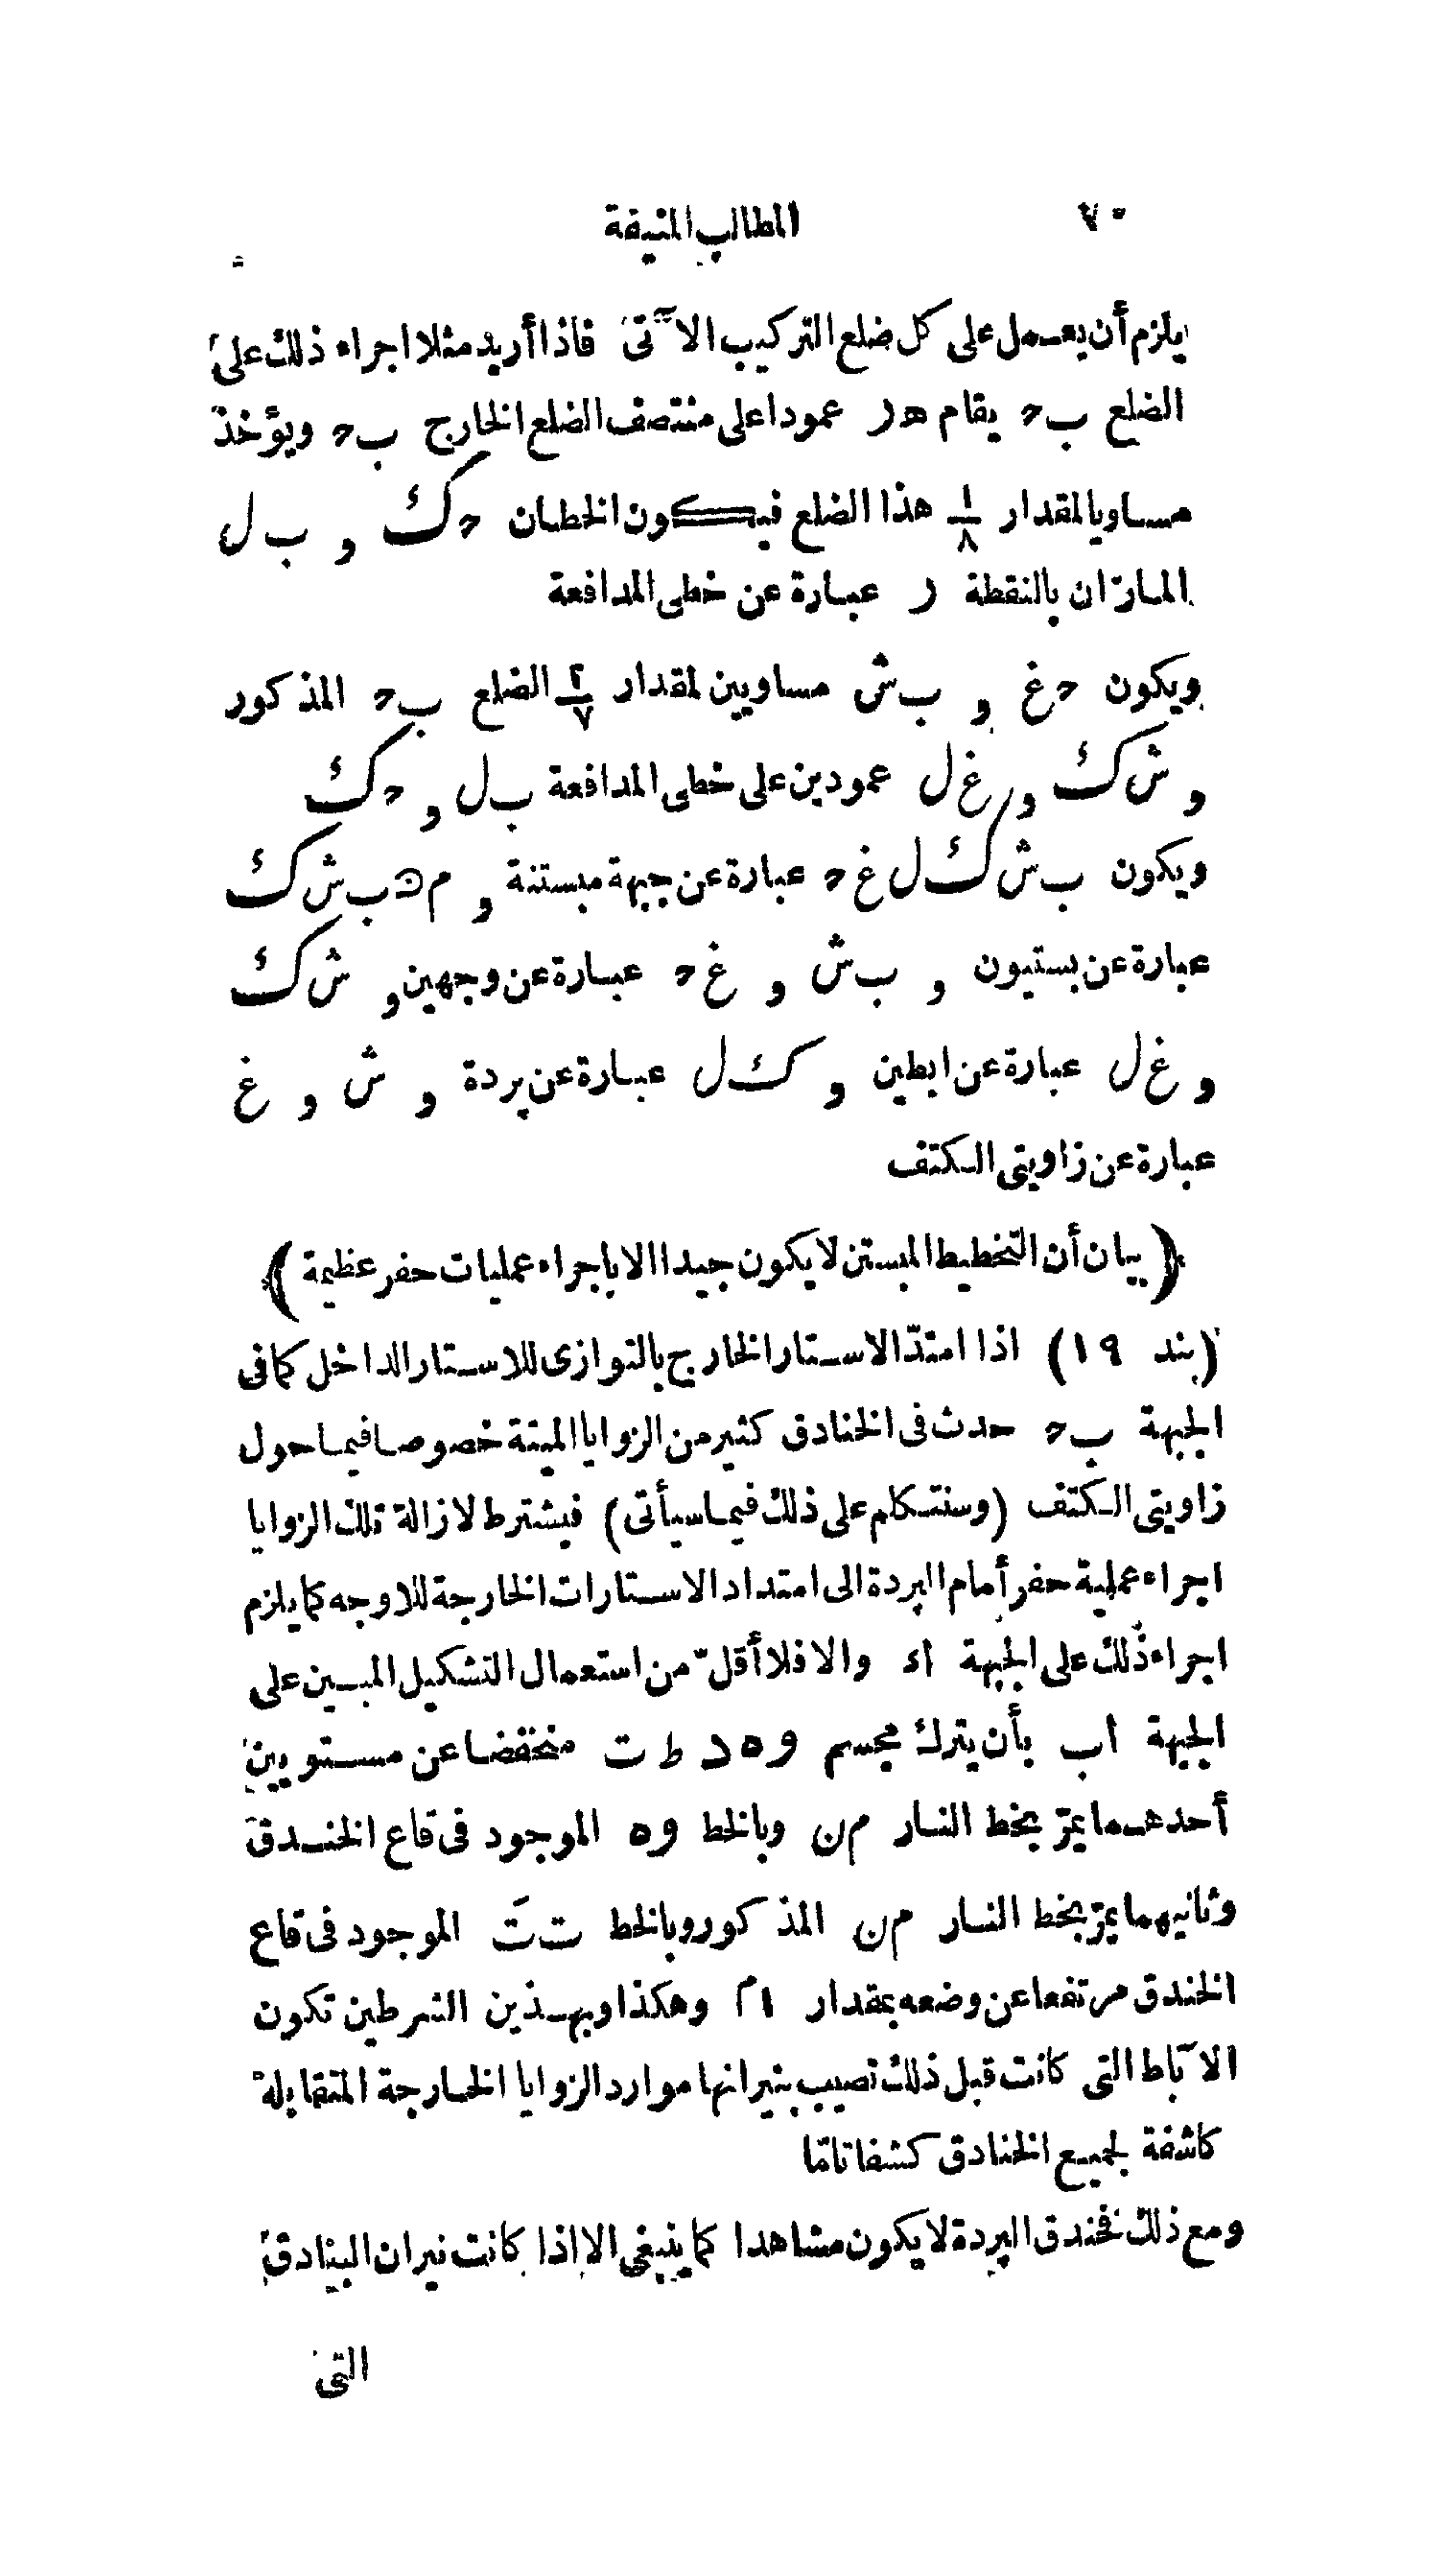 ٧٠ المطالب المنيفة
يلزم أن يعمل على كل ضلع التركيب الآتى فاذا أريد مثلا اجراء ذلك على
الضلع ب ح يقام ه ر عمودا على منتصف الضلع الخارج ب ح ويؤخذ
مساويا لمقدار ١/٨ هذا الضلع فيكون الخطان ح ك و ب ل
المارّان بالنقطة ر عبارة عن خطى المدافعة
ويكون ح غ و ب ش مساويين لمقدار ٢/٧ الضلع ب ح المذكور
و ش ك و غ ل عمودين على خطى المدافعة ب ل و ح ك
ويكون ب ش ك ل غ ح عبارة عن جبهة مبستنة و م ب ش ك
عبارة عن بستيون و ب ش و غ ح عبارة عن وجهين و ش ك
و غ ل عبارة عن ابطين و ك ل عبارة عن بردة و ش و غ
عبارة عن زاويتى الكتف
﴿بيان أن التخطيط المبستن لا يكون جيدا الا باجراء عمليات حفر عظيمة﴾
(بند ١٩) اذا امتدّ الاستار الخارج بالتوازى للاستار الداخل كما فى
الجبهة ب ح حدث فى الخنادق كثير من الزوايا الميتة خصوصا فيما حول
زاويتى الكتف (وسنتكلم على ذلك فيما سيأتى) فيشترط لازالة تلك الزوايا
اجراء عملية حفر أمام البردة الى امتداد الاستارات الخارجة للاوجه كما يلزم
اجراء ذلك على الجبهة اء والا فلا أقلّ من استعمال التشكيل المبين على
الجبهة اب بأن يترك مجسم و ه د ط ت منخفضا عن مستويين
أحدهما يمرّ بخط النار م ن وبالخط و ه الموجود فى قاع الخندق
وثانيهما يمرّ بخط النار م ن المذكور وبالخط ت تَ الموجود فى قاع
الخندق مرتفعا عن وضعه بمقدار ١م وهكذا وبهذين الشرطين تكون
الآباط التى كانت قبل ذلك تصيب بنيرانها موارد الزوايا الخارجة المتقابلة
كاشفة لجميع الخنادق كشفا تامّا
ومع ذلك فخندق البردة لا يكون مشاهدا كما ينبغى الا اذا كانت نيران البنادق
التى